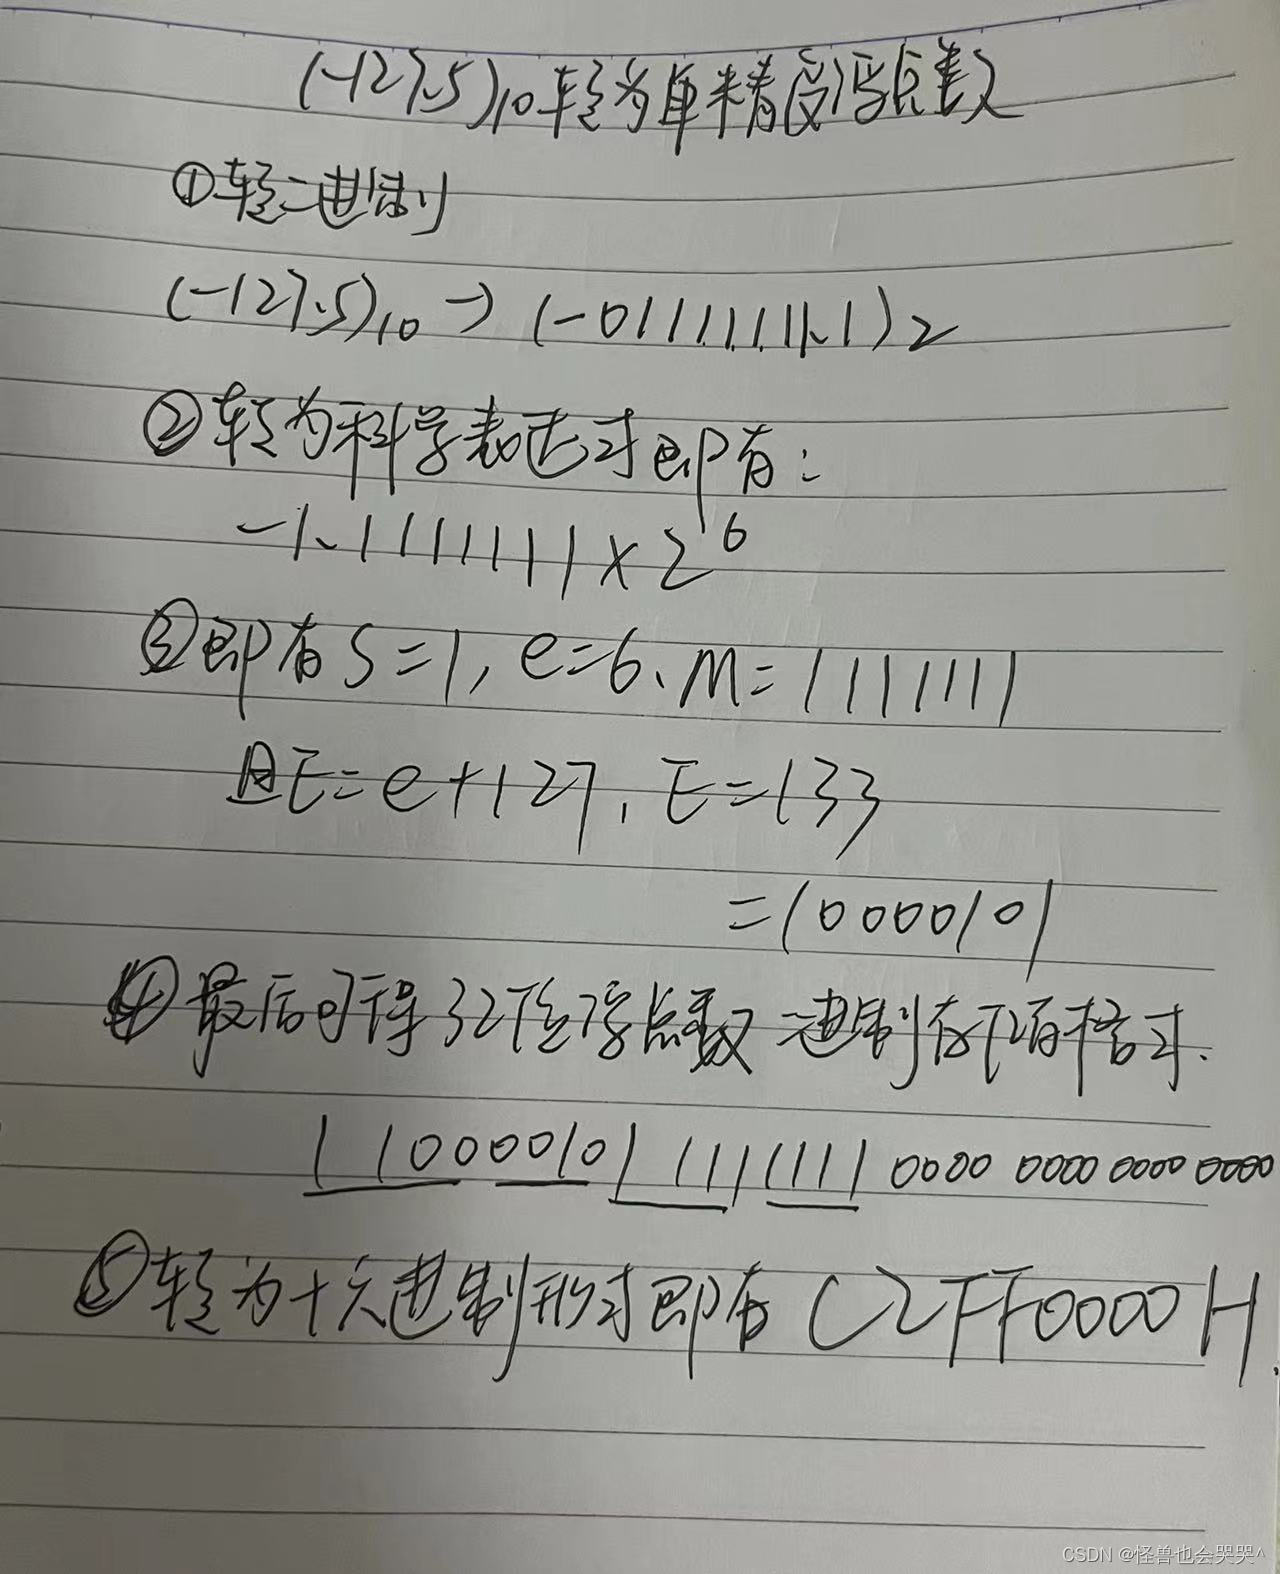 (-127.5)10转为单精度浮点数
①转二进制
(-127.5)10→(-01111111.1)2
②转为科学表达式即有:
-1.1111111×2^6
③即有S=1,e=6、M=1111111
且E=e+127,E=133
=10000101
④最后可得32位浮点数二进制存储格式.
1 10000101 1111111 0000 0000 0000 0000
⑤转为十六进制形式即有C2FF0000H.
CSDN @怪兽也会哭哭^